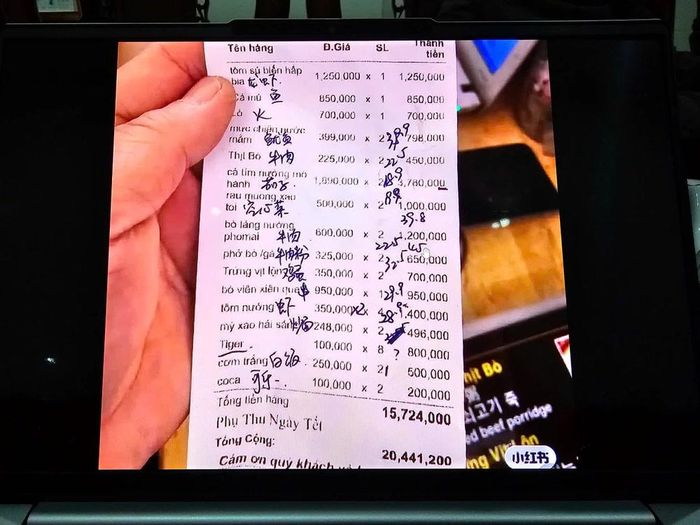 Tên hàng Đ.Giá SL Thành tiền
tôm sú biển hấp
bia 1,250,000 x 1 1,250,000
cá mú 鱼 850,000 x 1 850,000
火 700,000 x 1 700,000
mực chiên nước
mắm 鱿鱼 399,000 x 2 39.9 798,000
Thịt Bò 牛肉 225,000 x 2 22.5 450,000
cà tím nướng mỡ
hành 茄子 1,890,000 x 2 18.9 3,780,000
rau muống xào
tỏi 空心菜 500,000 x 2 1,000,000
39.8
bò lăng nướng
phomai 牛肉 600,000 x 2 1,200,000
22.5 45
phở bò /gà 牛肉粉 325,000 x 2 650,000
32.5
Trứng vịt lộn 350,000 x 2 700,000
bò viên xiên que 串 950,000 x 1 29.9 950,000
tôm nướng 虾 350,000 x2 38.9 1,400,000
mỳ xào hải sản 248,000 x 2 496,000
Tiger 100,000 x 8 ? 800,000
cơm trắng 白饭 250,000 x 2 1 500,000
coca 100,000 x 2 200,000
Tổng tiền hàng 15,724,000
Phụ Thu Ngày Tết
Tổng Cộng: 20,441,200
Cảm ơn quý khách và
hịt Bò
粥
쇠고기 죽
ed beef porridge
ng Vịt
小红书